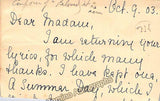 Oct. 9. 03.
Dear Madam,
I am returning your
lyrics, for which many
thanks. I have kept one,
A Summer Day, which I